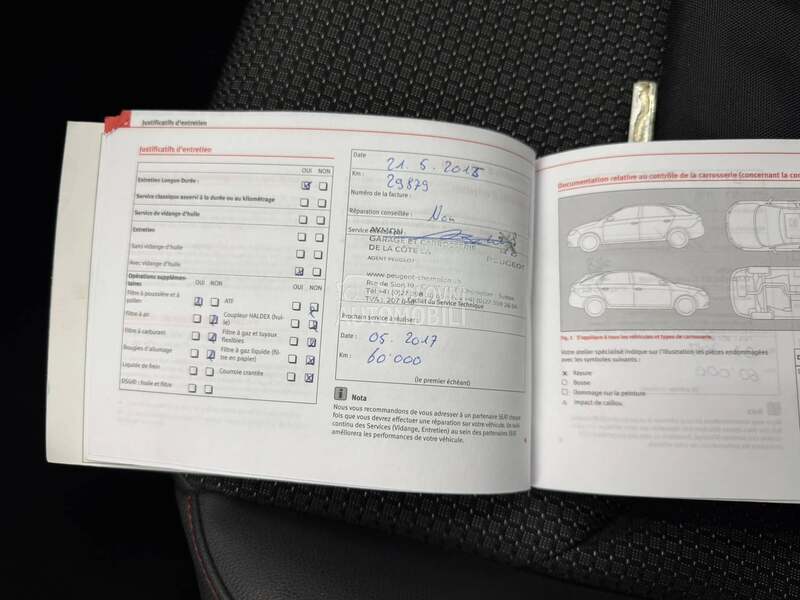 Justificatifs d'entretien
Justificatifs d'entretien
OUI NON
Entretien Longue Durée :
Service classique asservi à la durée ou au kilométrage
Service de vidange d'huile
Entretien
Sans vidange d'huile
Avec vidange d'huile
Opérations supplémentaires
OUI NON
OUI NON
Filtre à poussière et à pollen
ATF
Filtre à air
Coupleur HALDEX (huile)
Filtre à carburant
Filtre à gaz et tuyaux flexibles
Bougies d'allumage
Filtre à gaz liquide (filtre en papier)
Liquide de frein
Courroie crantée
DSG® : huile et filtre
Date
21. 5. 2015
Km :
29879
Numéro de la facture :
Réparation conseillée :
Non
Service
AYMON
GARAGE ET CARROSSERIE
DE LA CÔTE
AGENT PEUGEOT
PEUGEOT
Rue de Sion
Cachet du Service Technique
Prochain service à réaliser :
Date :
05. 2017
Km :
60'000
(le premier échéant)
Nota
Nous vous recommandons de vous adresser à un partenaire SEAT chaque
fois que vous devrez effectuer une réparation sur votre véhicule. Un suivi
continu des Services (Vidange, Entretien) au sein des partenaires SEAT
améliorera les performances de votre véhicule.
Documentation relative au contrôle de la carrosserie (concernant la
Fig. 1 S'applique à tous les véhicules et types de carrosserie.
Votre atelier spécialisé indique sur l'illustration les pièces endommagées
avec les symboles suivants :
× Rayure
○ Bosse
□ Dommage sur la peinture
△ Impact de caillou.